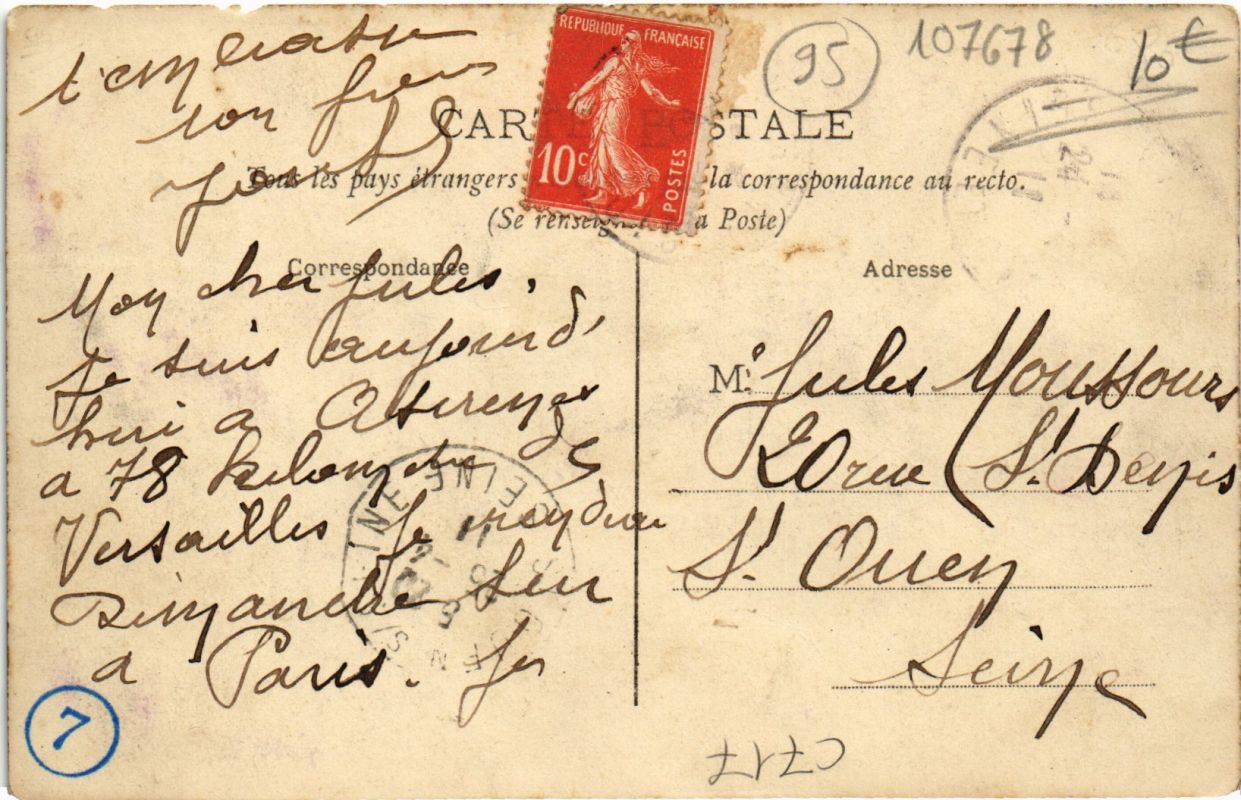 t'embrasse
ton frère
95
107678
10€
RÉPUBLIQUE FRANÇAISE
10c
POSTES
CARTE POSTALE
Tous les pays étrangers la correspondance au recto.
(Se renseigner a Poste)
Correspondance
Mon cher Jules,
je suis aujourd'
hui a
a 78 de
Versailles. Je
Dimanche sur
a Paris. Je
7
Adresse
M. Jules Moussours
20 rue St. Denis
St. Ouen
Seine
C717